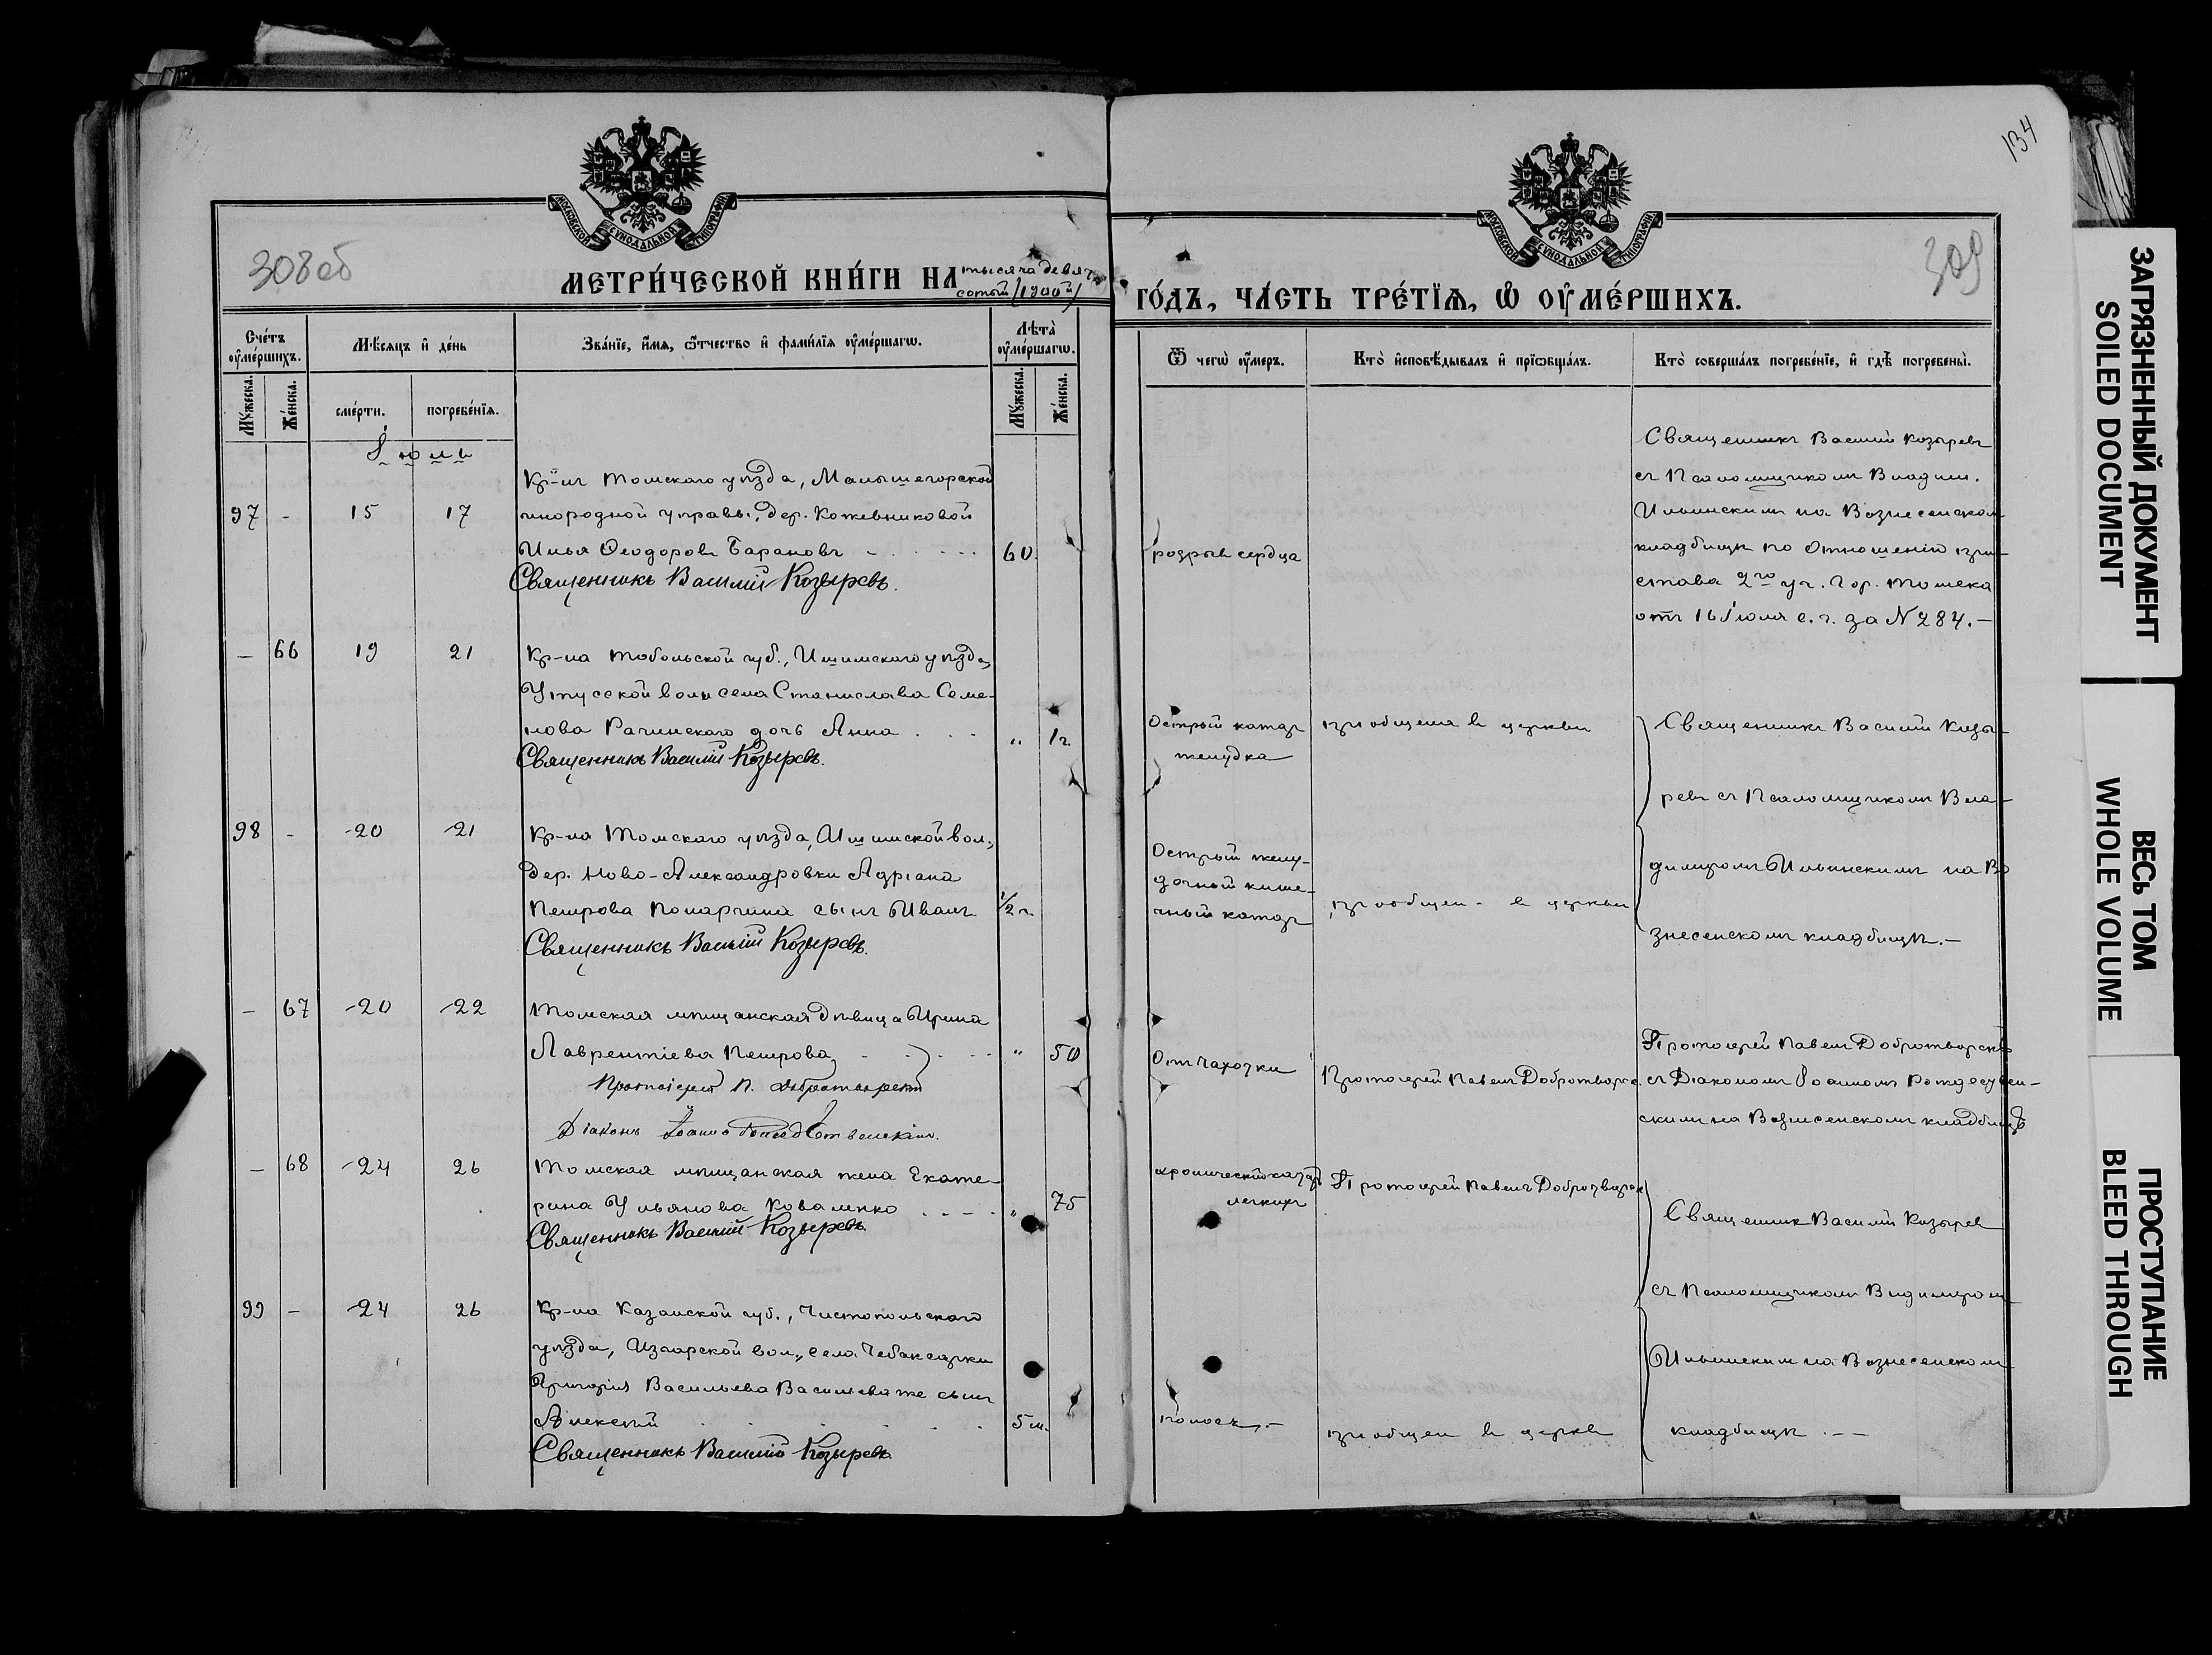 134
308об
309
МОСКОВСКОЙ СѴНОДАЛЬНОЙ ТИПОГРАФІИ
МОСКОВСКОЙ СѴНОДАЛЬНОЙ ТИПОГРАФІИ
МЕТРИ́ЧЕСКОЙ КНИ́ГИ НА тысяча девят
сотый (1900й)
ГО́ДЪ, ЧА́СТЬ ТРЕ́ТЇѦ, Ѡ҆ ОУ҆МЕ́РШИХЪ.
Сче́тъ оу҆ме́ршихъ.
Мѣ́сяцъ и҆ де́нь
Зва́нїе, и҆́мѧ, ѻ҆́тчество и҆ фамѝлїѧ оу҆ме́ршагѡ.
Лѣ́та оу҆ме́ршагѡ.
Ѿ чегѡ̀ оу҆́меръ.
Кто̀ и҆сповѣ́дывалъ и҆ прїѡбща́лъ.
Кто̀ соверша́лъ погребе́нїе, и҆ гдѣ̀ погребены̀.
Мꙋ́жеска.
Же́нска.
сме́рти.
погребе́нїѧ.
Мꙋ́жеска.
Же́нска.
Іюль
97 - 15 17
Кр-нъ Томскаго уѣзда, Малышегорской
инородной управы, дер. Кожевниковой
Илья Ѳеодоровъ Барановъ - 60.
Священникъ Василій Козыревъ.
розрывъ сердца
Священникъ Василій Козыревъ
съ Псаломщикомъ Владим.
Ильинскимъ на Вознесенском
кладбищѣ по Отношенію при-
става 2го уч. Гор. Томска
отъ 16 Іюля с. г. за N 284.-
- 66 19 21
Кр-на Тобольской губ., Ишимскаго уѣзда,
Утусской вол. села Станислава Семе-
нова Рачинскаго дочь Анна . . . „ 1 г.
Священникъ Василій Козыревъ.
Острый катар
желудка
приобщена въ церкви
Священникъ Василій Козы-
ревъ съ Псаломщикомъ Вла-
диміромъ Ильинскимъ на Во
знесенскомъ кладбищѣ.-
98 - 20 21
Кр-на Томскаго уѣзда, Ишимской вол.,
дер. Ново-Александровки Адріана
Петрова Понарина сынъ Иванъ 1/2 г.
Священникъ Василій Козыревъ.
Острый желу-
дочный кише-
чный катар
приобщен - въ церкви
- 67 20 22
Томская мѣщанская дѣвица Ирина
Лаврентіева Петрова - „ 50
Протоіерей П. Добротворскій
Діаконъ Іоаннъ Рождественскій.
От чахотки
Протоіерей Павелъ Добротворс.
Протоіерей Павелъ Добротворскій
съ Діакономъ Іоанномъ Рождествен-
скимъ на Вознесенскомъ кладбищѣ
- 68 24 26
Томская мѣщанская жена Екате-
рина Ульянова Коваленко . . . . „ 75
Священникъ Василій Козыревъ
хроническій катар
легкихъ
Протоіерей Павелъ Добротворск
Священник Василій Козырев
съ Псаломщикомъ Владиміром
Ильинским на Вознесенском
кладбищѣ . -
99 - 24 26
Кр-на Казанской губ., Чистопольскаго
уѣзда, Изгарской вол., села Чебаксарки
Григорія Васильева Васильева же сынъ
Алексѣй . . . . . . 5 м.
Священникъ Василій Козыревъ
поносъ.-
приобщен въ церкви
ЗАГРЯЗНЕННЫЙ ДОКУМЕНТ
SOILED DOCUMENT
ВЕСЬ ТОМ
WHOLE VOLUME
ПРОСТУПАНИЕ
BLEED THROUGH